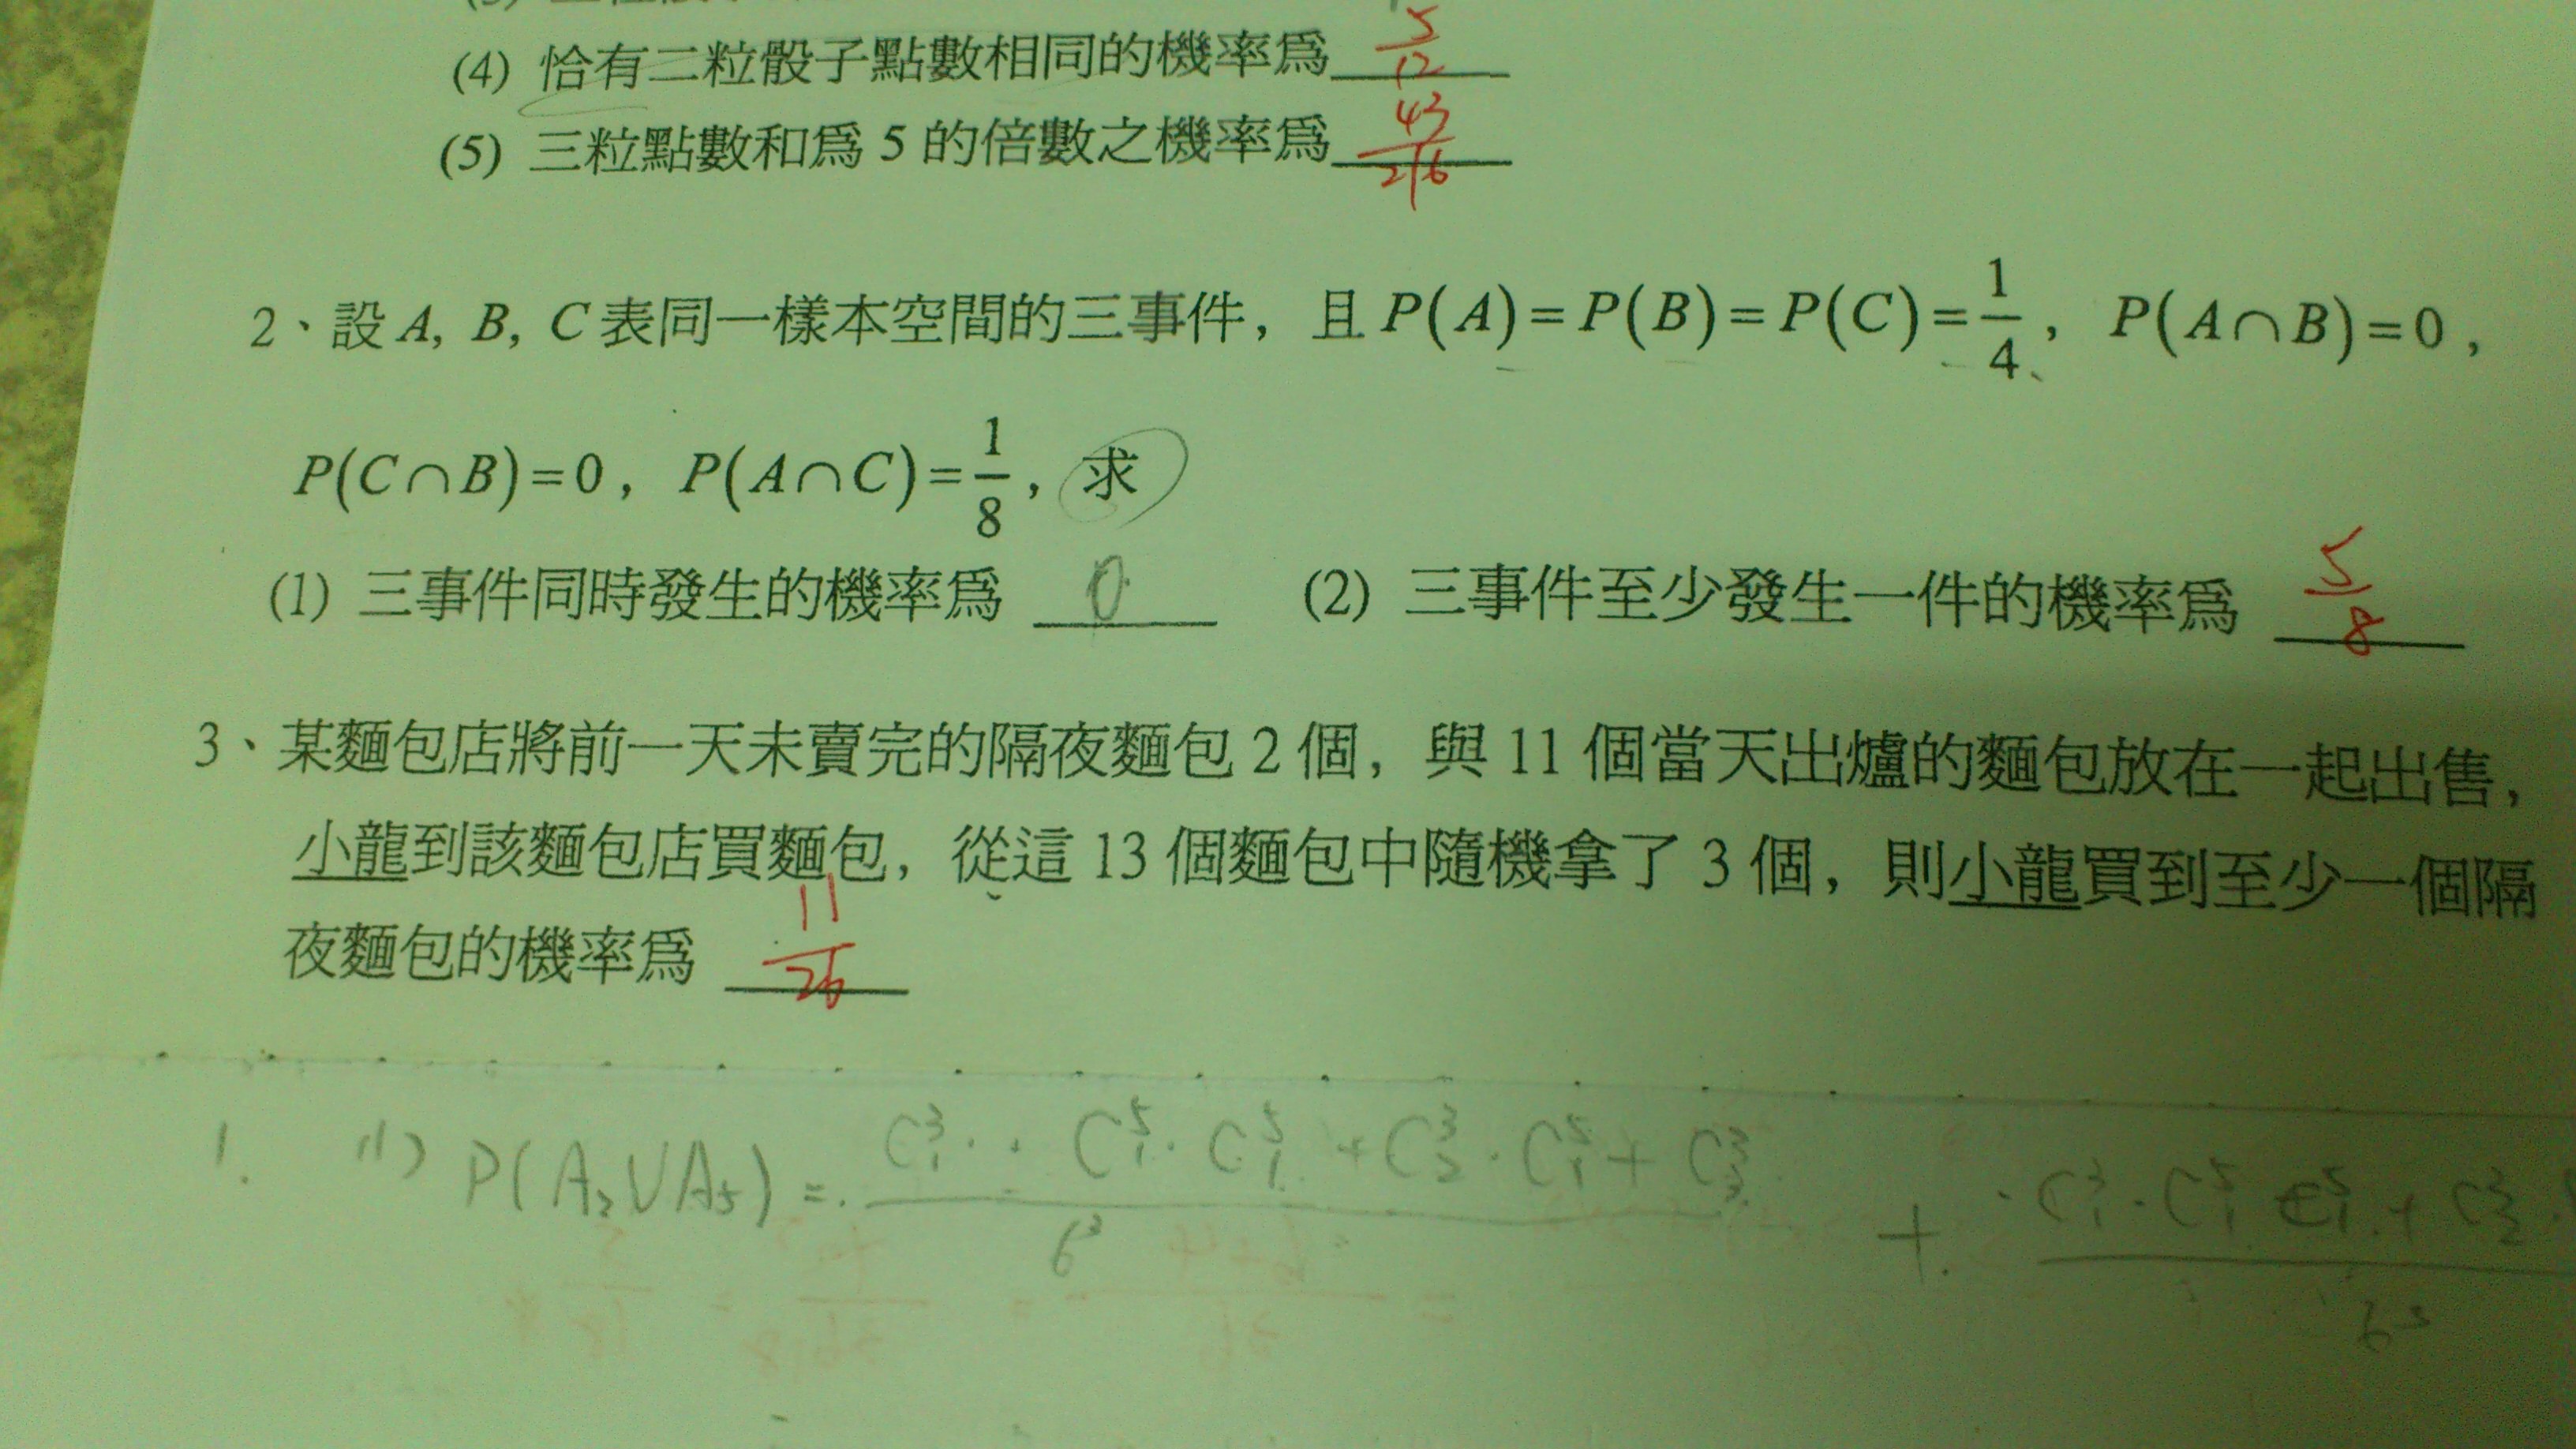 (4) 恰有二粒骰子點數相同的機率為 5/12
(5) 三粒點數和為 5 的倍數之機率為 43/216
2、設 A, B, C 表同一樣本空間的三事件，且 P(A)=P(B)=P(C)=1/4，P(A∩B)=0，
P(C∩B)=0，P(A∩C)=1/8，求
(1) 三事件同時發生的機率為 0 (2) 三事件至少發生一件的機率為 5/8
3、某麵包店將前一天未賣完的隔夜麵包 2 個，與 11 個當天出爐的麵包放在一起出售，
小龍到該麵包店買麵包，從這 13 個麵包中隨機拿了 3 個，則小龍買到至少一個隔
夜麵包的機率為 11/26
1. (1) P(A₂∪A₅) = (C³₁·C⁵₁·C⁵₁+C³₂·C⁵₁+C³₃)/6³ +